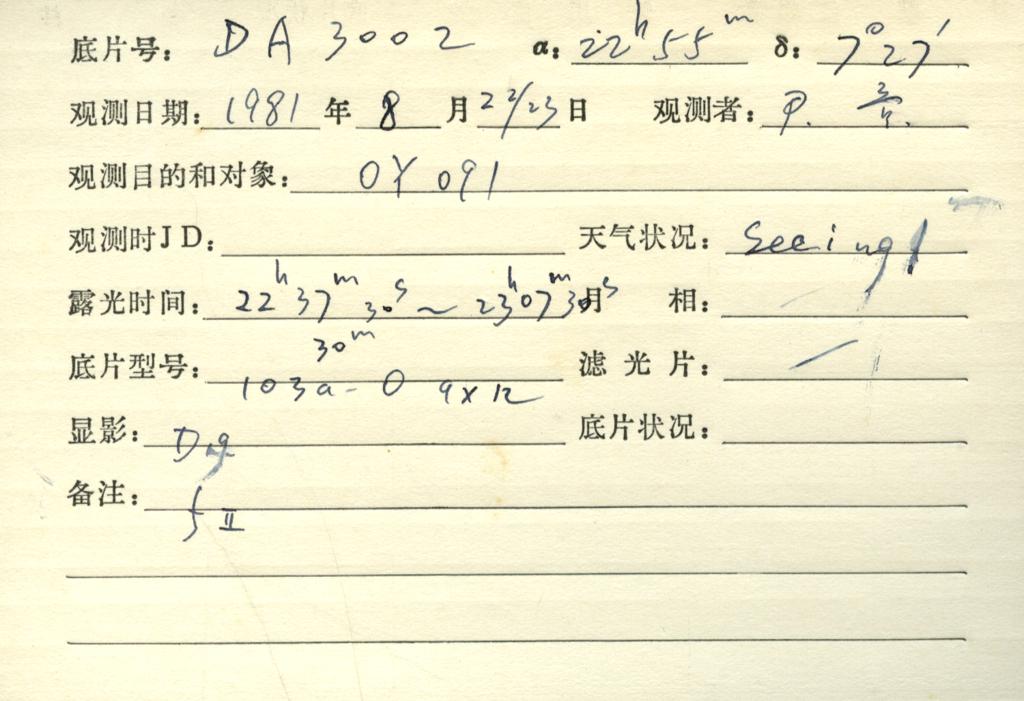 底片号: DA 3002 α: 22ʰ55ᵐ δ: 7°27′
观测日期: 1981 年 8 月 22/23 日 观测者:
观测目的和对象: OY 091
观测时JD: 天气状况: Seeing 1
露光时间: 22ʰ37ᵐ30ˢ ~ 23ʰ07ᵐ30ˢ 月 相:
30ᵐ
底片型号: 103a-O 9×12 滤光片: /
显影: D19 底片状况:
备注: f II